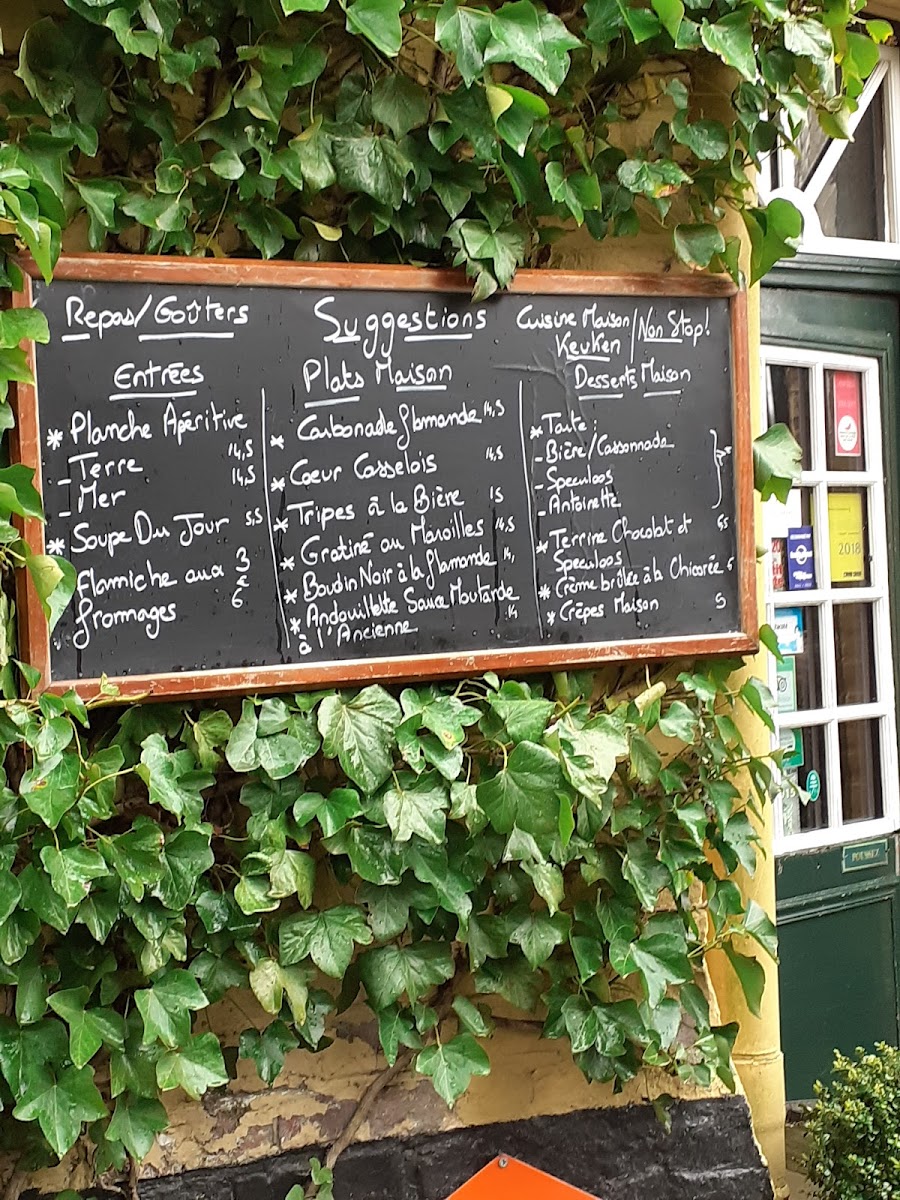 Repas/Goûters
Entrées
* Planche Apéritive
- Terre 14,5
- Mer 14,5
* Soupe Du Jour 5,5
Flamiche aux 3
fromages 6
Suggestions
Plats Maison
* Carbonade flamande 14,5
* Coeur Casselois 14,5
* Tripes à la Bière 15
* Gratiné au Maroilles 14,5
* Boudin Noir à la flamande 14,
* Andouillette Sauce Moutarde
à l'Ancienne 14
Cuisine Maison / Non Stop!
Keuken
Desserts Maison
* Tarte :
- Bière/Cassonnade
- Speculoos
- Antoinette
* Terrine Chocolat et
Speculoos
* Crème brûlée à la Chicorée 6
* Crêpes Maison 5
2018
POUSSEZ